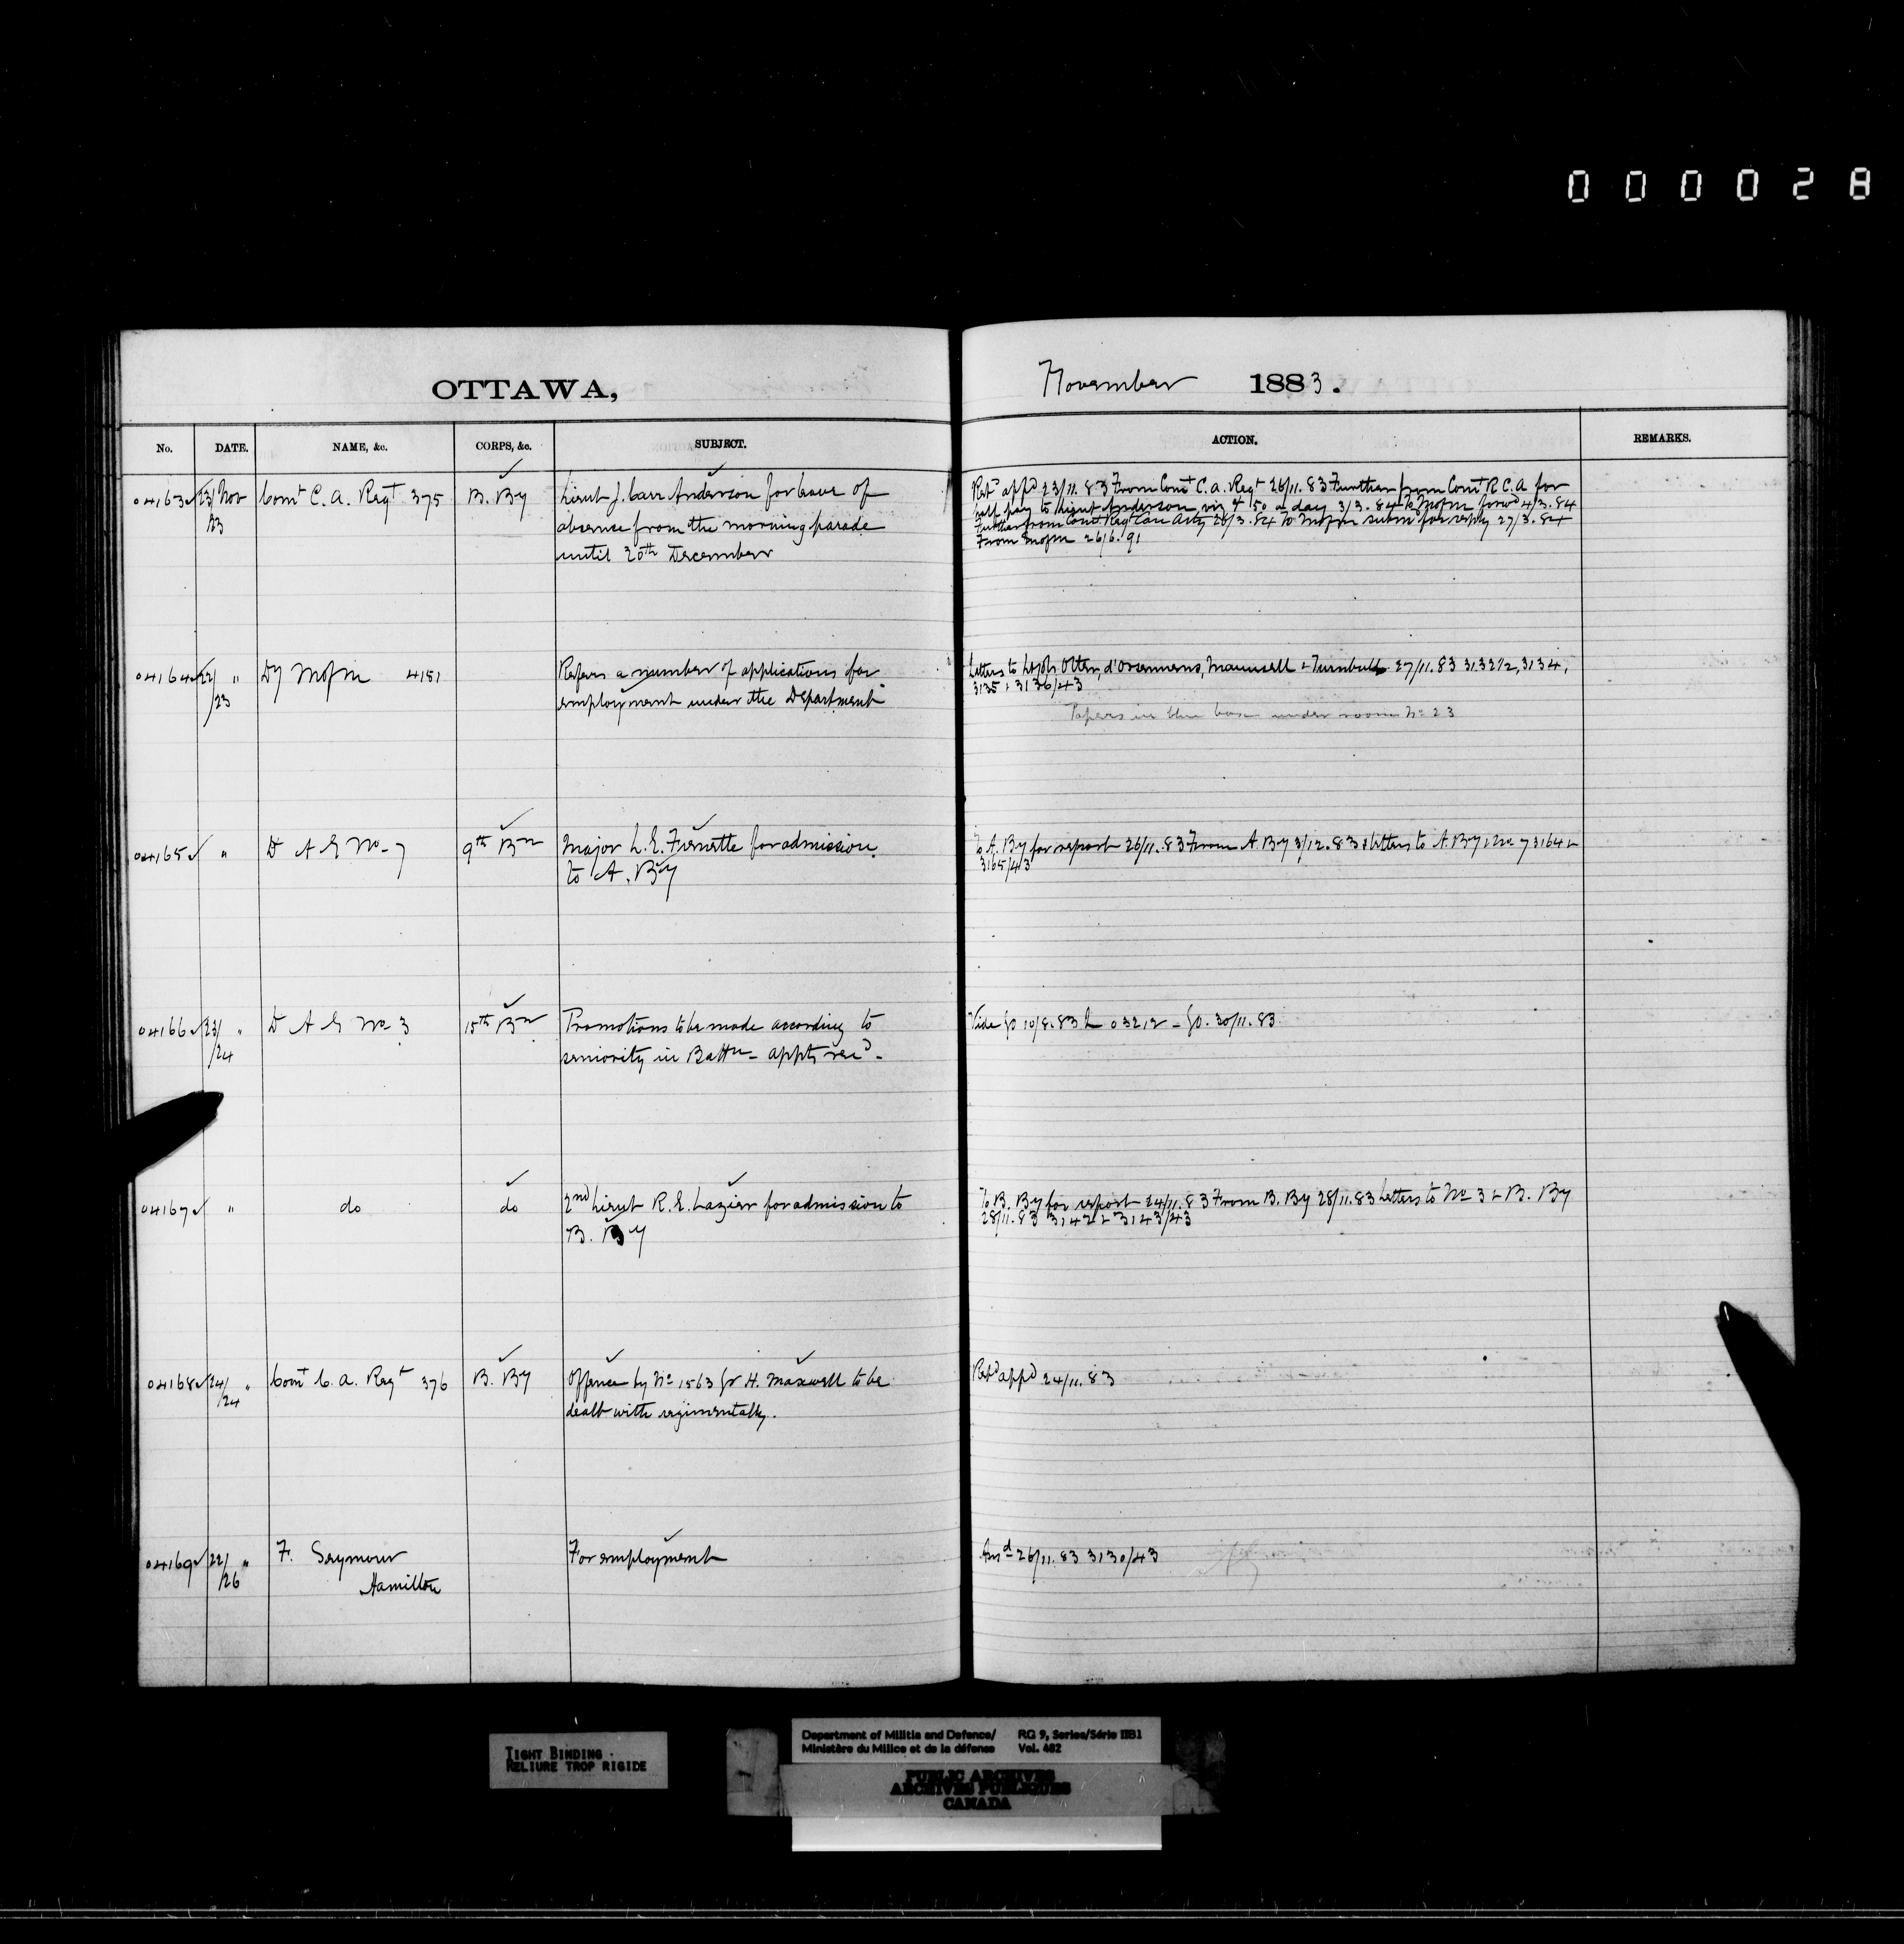 000028
OTTAWA, November 1883.
No. DATE. NAME, &c. CORPS, &c. SUBJECT. ACTION. REMARKS.
04163 23/ Nov Comt C. A. Regt 375 B. By Lieut J. Carr Anderson for leave of
/23 absence from the morning parade
until 20th December
Retd appd 23/11.83 From Comt C. A. Regt 26/11.83 Further from Comt R C A for
half pay to Lieut Anderson viz $ 1 50 a day 3/3.84 to MofM forwd 4/3.84
Further from Comt Regt Can Arty 26/3.84 To MofM subm for reply 27/3.84
From MofM 26/6.91
04164 22/ " Dy MofM 4151 Refers a number of applications for
/23 employment under the Department
Letters to Lt Cols Otter, d'Orsonnens, Maunsell & Turnbull 27/11.83 3132 1/2, 3134,
3135 & 3136/43
Papers in blue box under room No 23
04165 " D A G No 7 9th Bn Major L. E. Frenette for admission
to A. By
To A. By for report 26/11.83 From A. By 3/12.83 & letters to A. By & No 7 3164 &
3165/43
04166 23/ " D A G No 3 15th Bn Promotions to be made according to
/24 seniority in Battn - appts recd -
Vide GO 10/8.83 L 03212 - GO. 30/11.83
04167 " do do 2nd Lieut R. E. Lazier for admission to
B. By
To B. By for report 24/11.83 From B. By 28/11.83 Letters to No 3 & B. By
28/11.83 3142 & 3143/43
04168 24/ " Comt C. A. Regt 376 B. By Offence by No 1563 Gr H. Maxwell to be
/24 dealt with regimentally.
Retd appd 24/11.83
04169 22/ " F. Seymour For employment
/26 Hamilton
Ansd 26/11.83 3130/43
TIGHT BINDING
RELIURE TROP RIGIDE
Department of Militia and Defence/ RG 9, Series/Série IIB1
Ministère du Milice et de la défense Vol. 482
PUBLIC ARCHIVES
ARCHIVES PUBLIQUES
CANADA